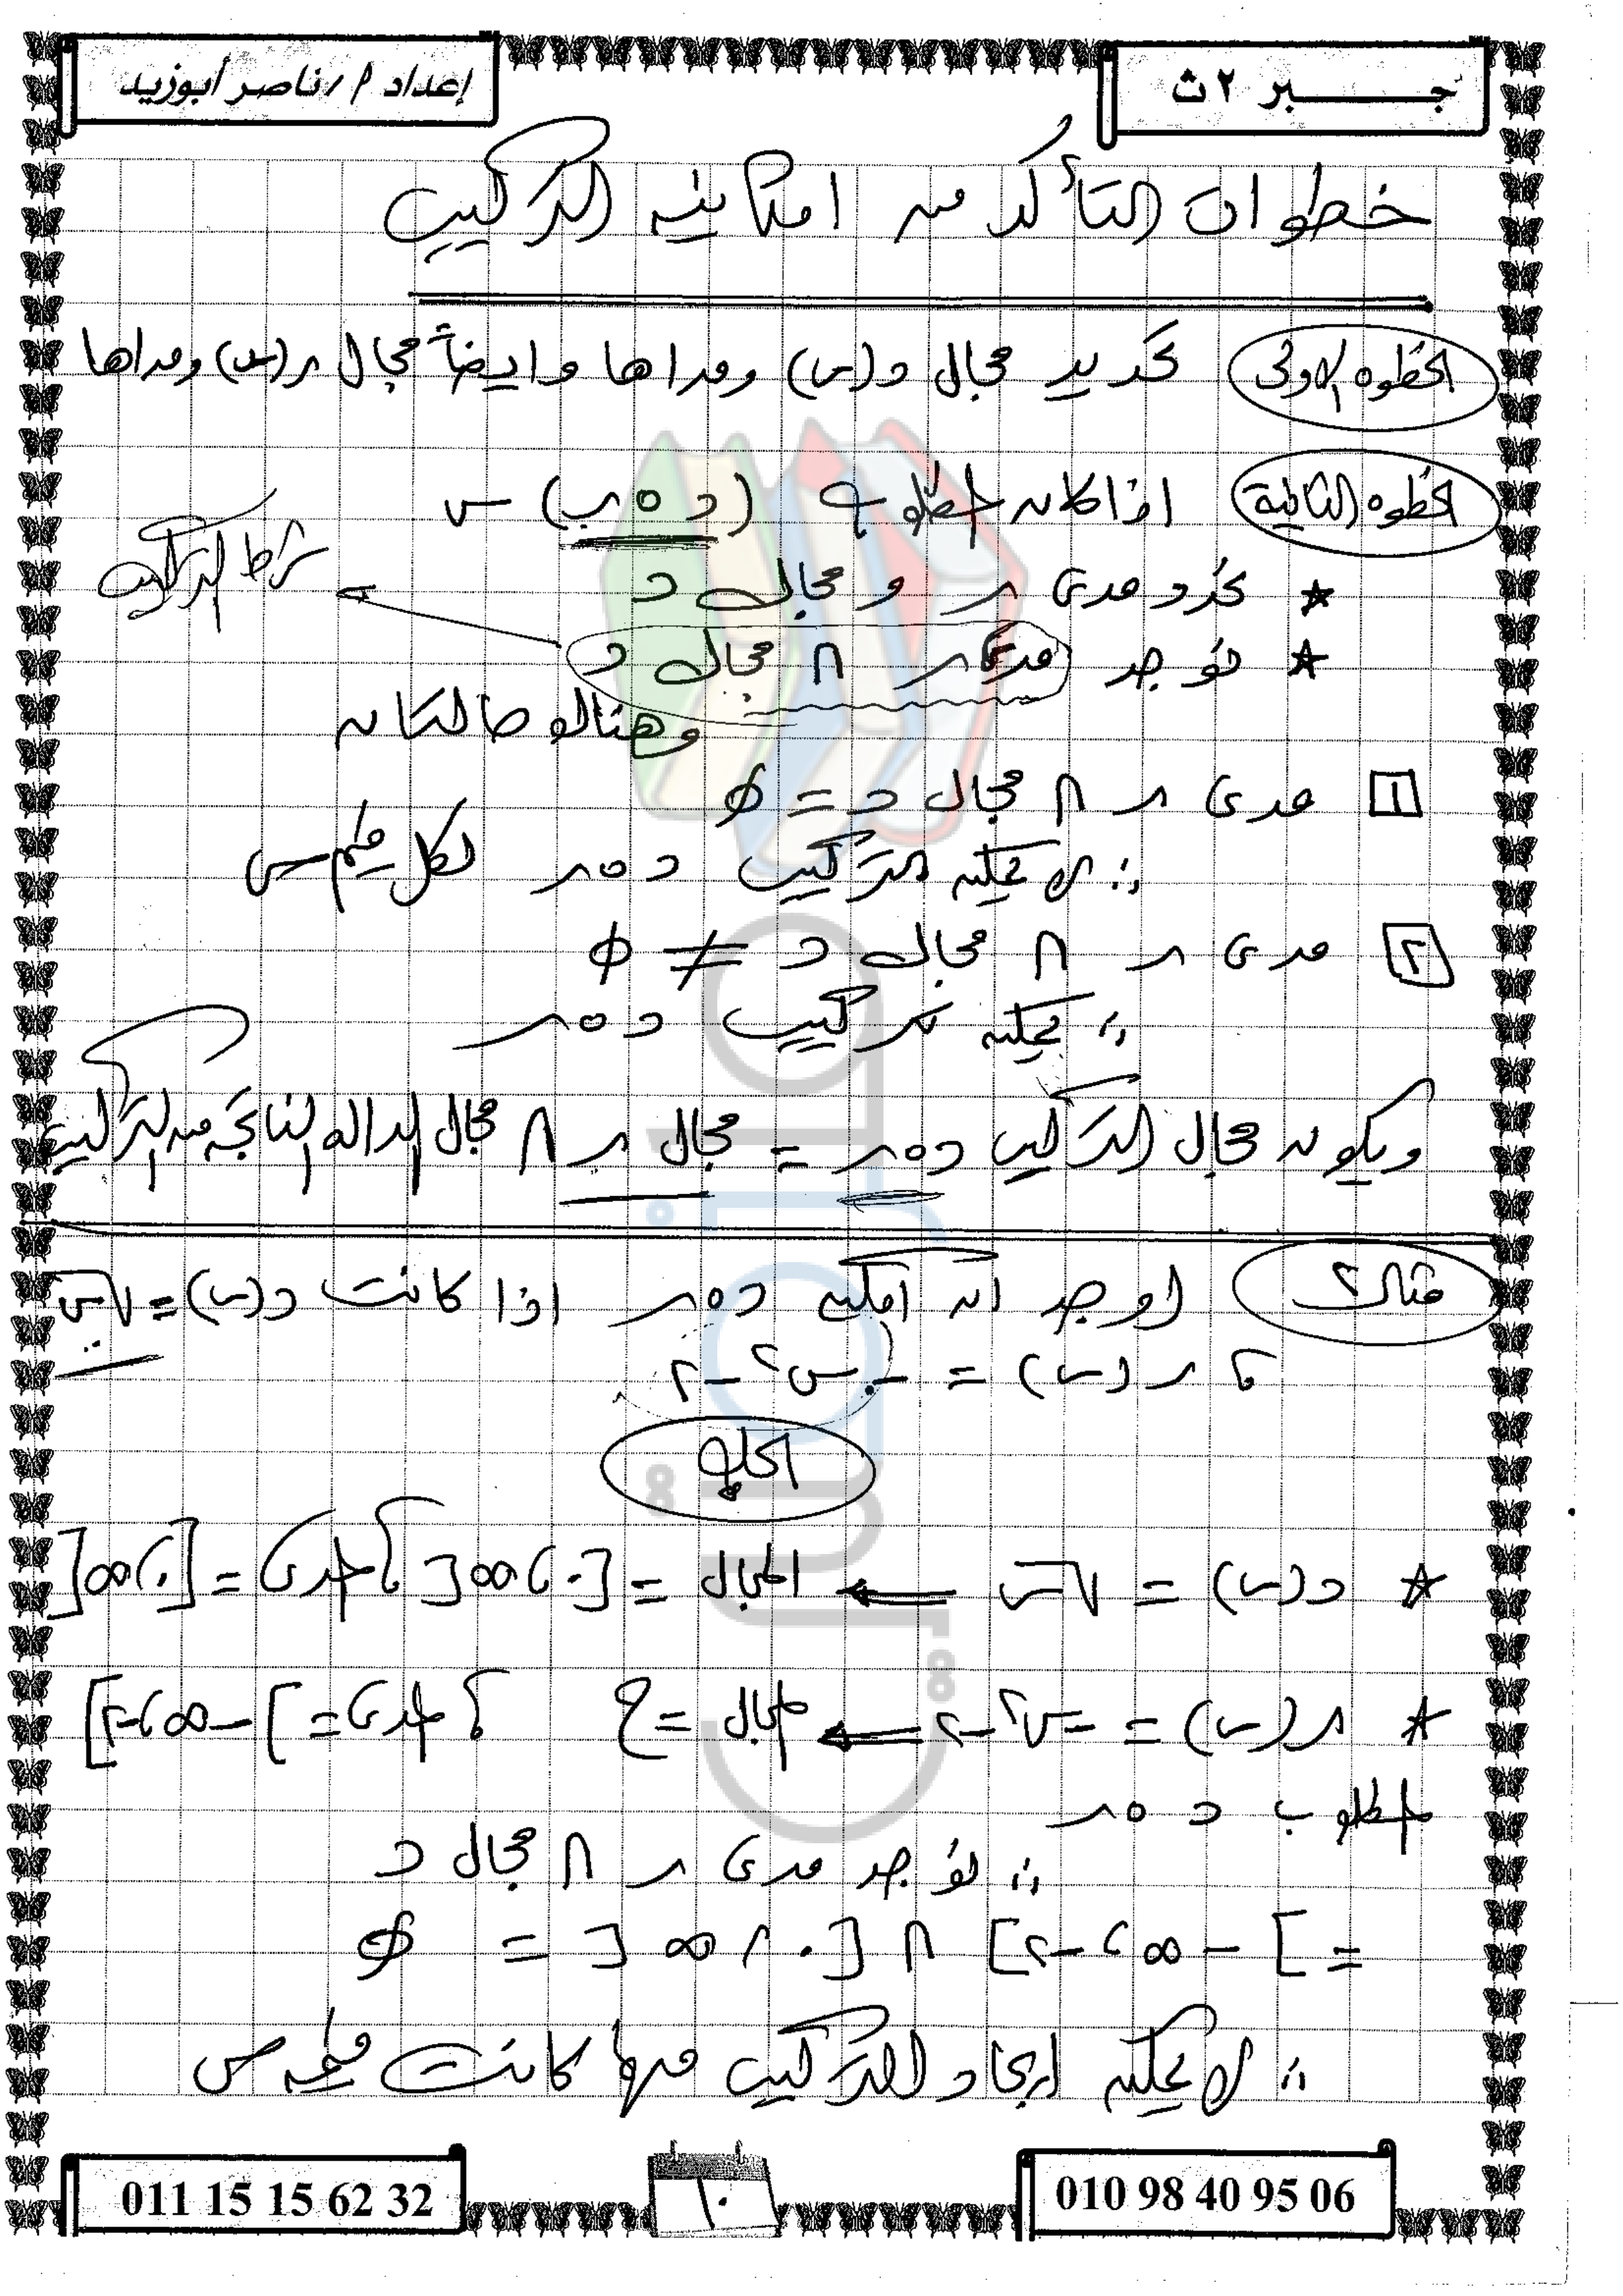 جبر ٢ ث
إعداد أ / ناصر أبوزيد
خطوات التأكد من امكانية التركيب
الخطوه الاولى تحديد مجال د(س) ومداها وايضاً مجال ر(س) ومداها
الخطوه الثانية اذا كان المطلوب (د ∘ ر) س
☆ نحدد مدى ر و مجال د
☆ نوجد مدى ر ∩ مجال د
شرط التركيب
وهنالك حالتان
١ مدى ر ∩ مجال د = φ
∴ لا يمكن التركيب د ∘ ر لكل قيم س
٢ مدى ر ∩ مجال د ≠ φ
∴ يمكن تركيب د ∘ ر
ويكون مجال التركيب د ∘ ر = مجال ر ∩ مجال الداله الناتجه من التركيب
مثال ٢ اوجد ان امكن د ∘ ر اذا كانت د(س) = √س
، ر(س) = -س² - ٢
الحل
☆ د(س) = √س ⟸ المجال = [٠، ∞[ ، المدى = [٠، ∞[
☆ ر(س) = -س² - ٢ ⟸ المجال = ح ، المدى = ]-∞، -٢]
المطلوب د ∘ ر
∴ نوجد مدى ر ∩ مجال د
= ]-∞، -٢] ∩ [٠، ∞[ = φ
∴ لا يمكن ايجاد التركيب مهما كانت قيمه س
011 15 15 62 32
١٠
010 98 40 95 06